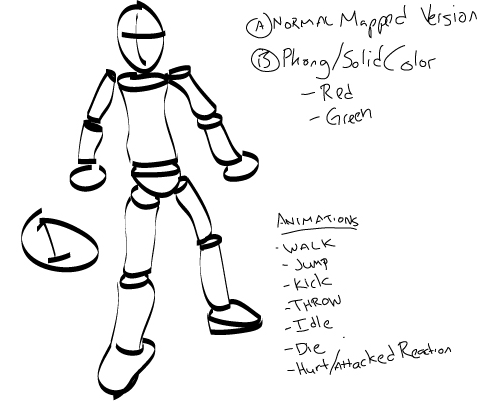 Ⓐ NORMAL Mapped Version
Ⓑ Phong/Solid Color
- Red
- Green
ANIMATIONS
· WALK
- JUMP
- Kick
- THROW
- Idle
- Die
- Hurt/Attacked Reaction